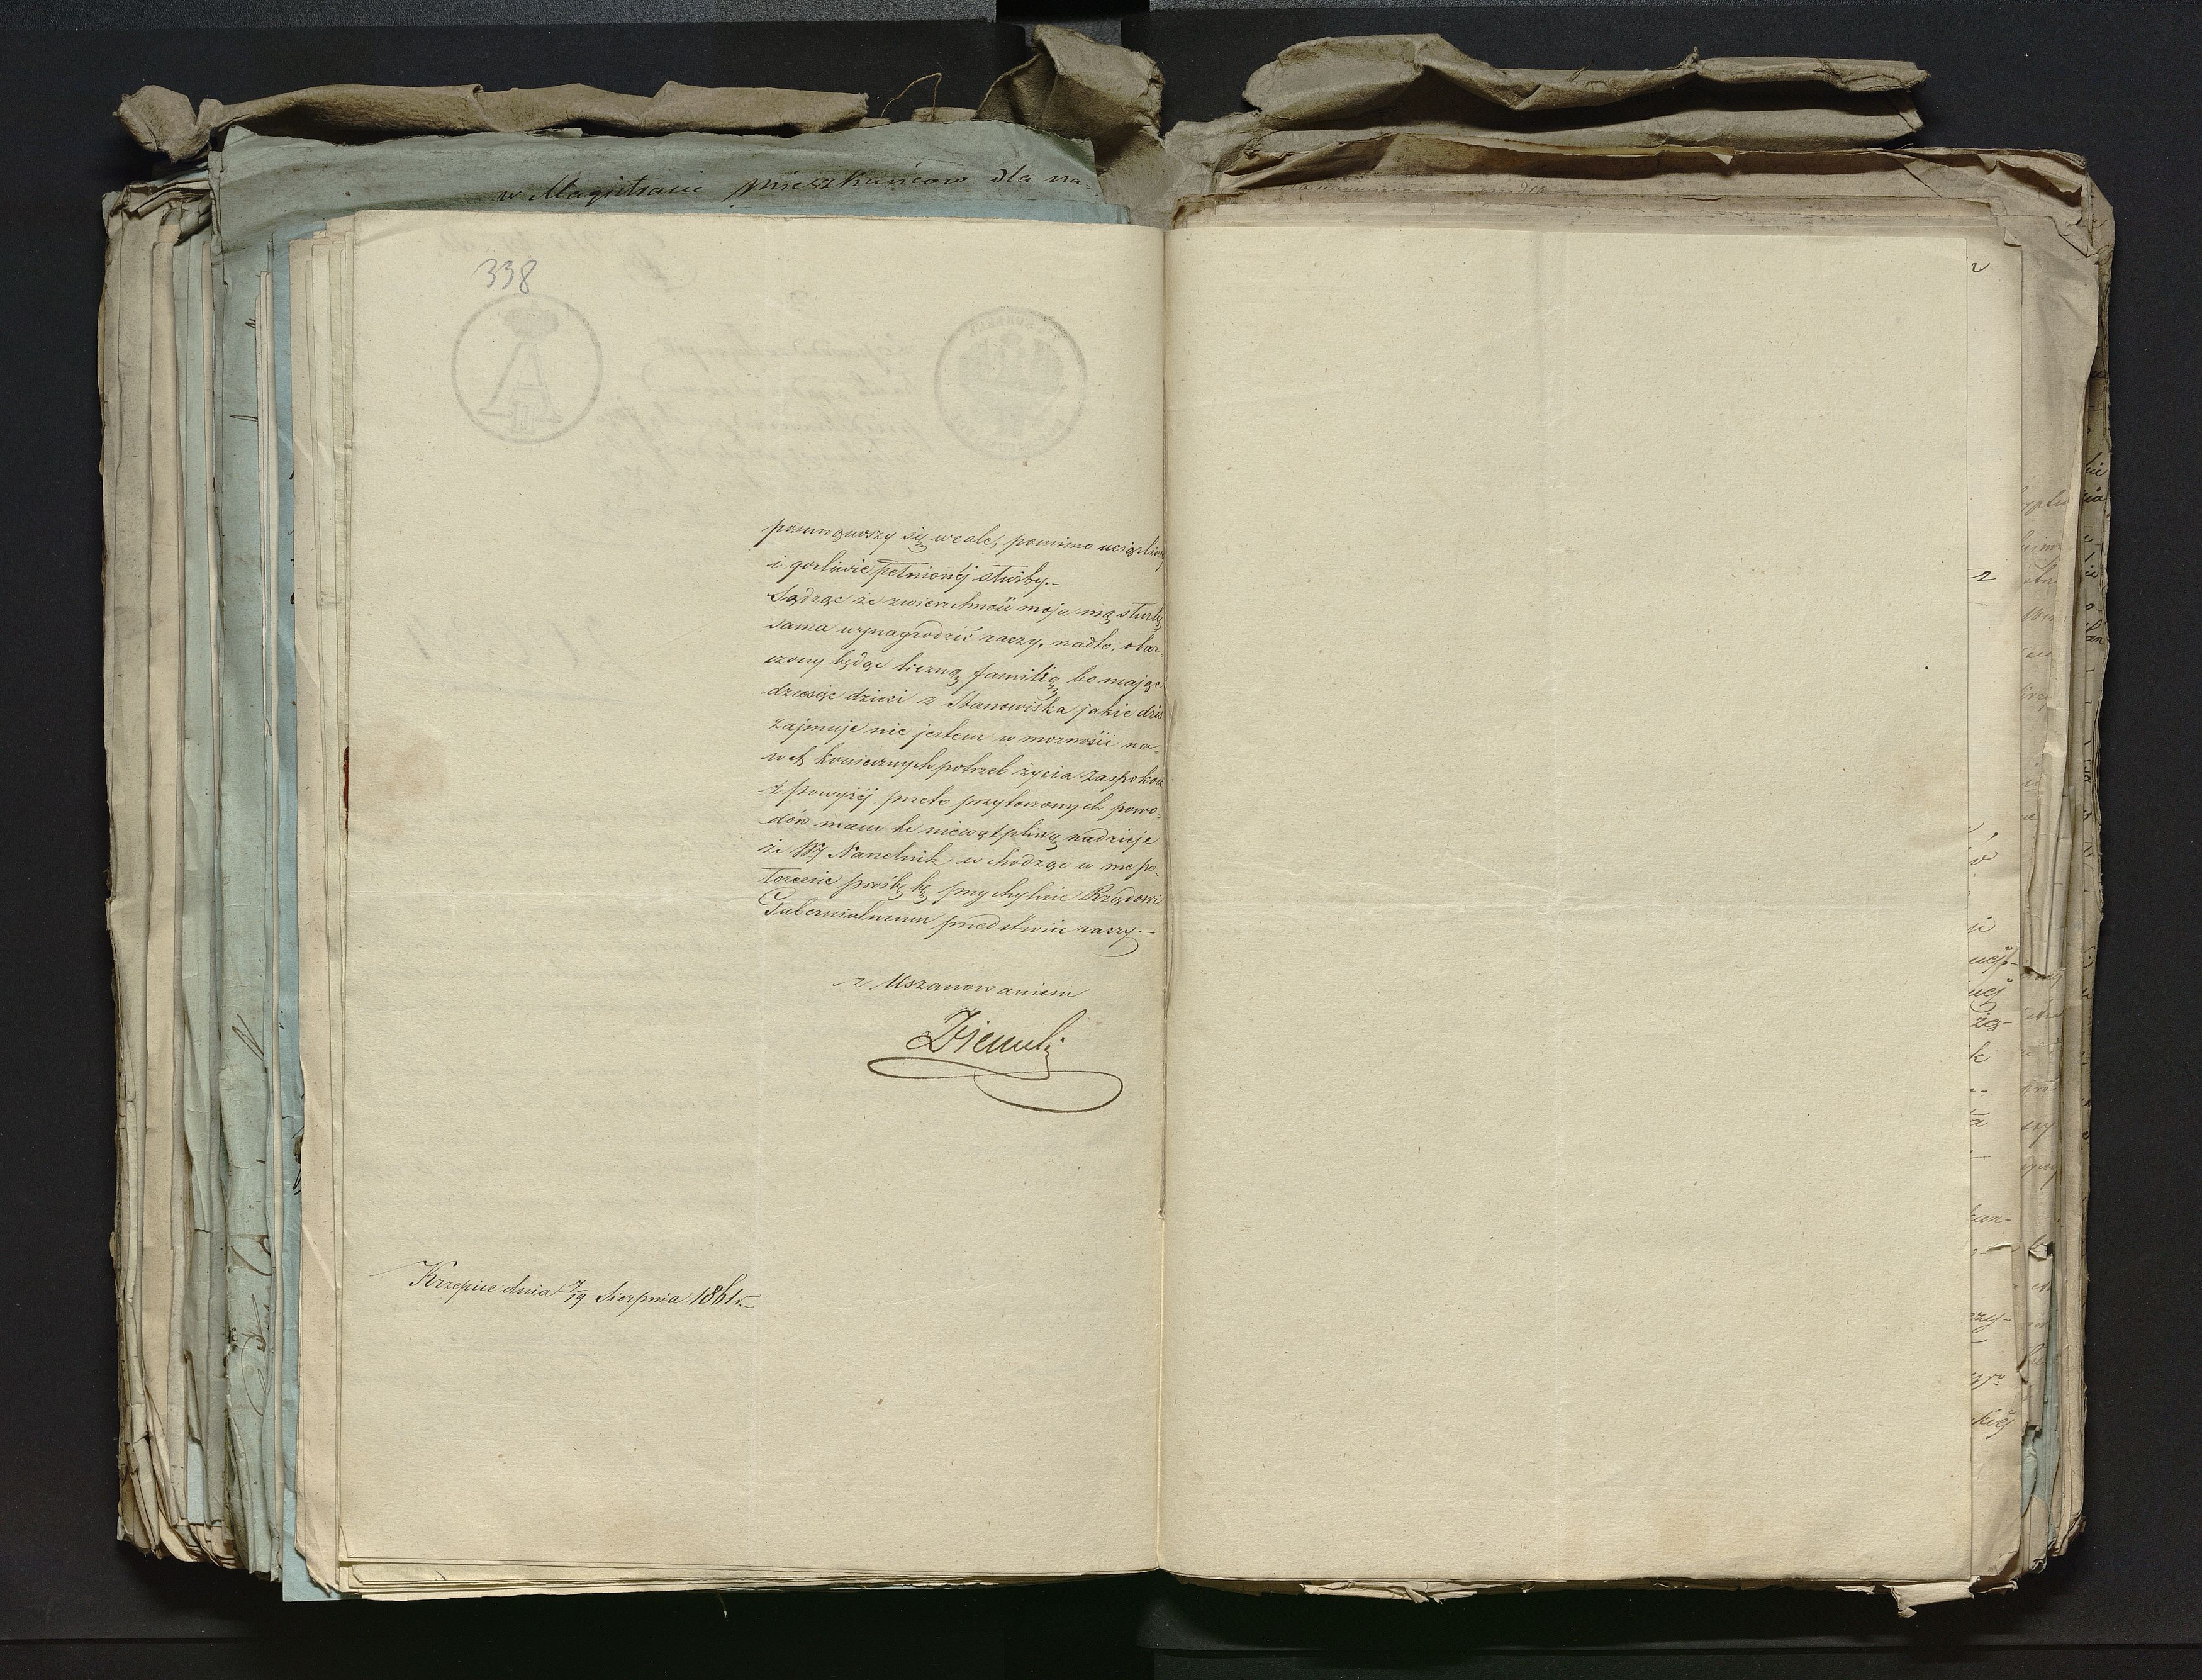 w Magistracie mieszkańców dla na-
338
A
II
posunąwszy się wcale, pomimo uciążliwej
i gorliwie pełnionéj służby.-
Sądząc że zwierzchność moja mą służbę
sama wynagrodzić raczy, nadto, obar-
czony będąc liczną familią bo mając
dziesięc dzieci z Stanowiska jakie dziś
zajmuje nie jestem w możności na-
wet koniecznych potrzeb życia zaspokoić
z powyżéj przeto przytoczonych powo-
dów mam tę niewątpliwą nadzieje
że WJ Naczelnik wchodząc w me po-
łożenie prośbę tę przychylnie Rządowi
Gubernialnemu przedstwić raczy.-
z Uszanowaniem
Krzepice dnia 7/19 Sierpnia 1861 r.-